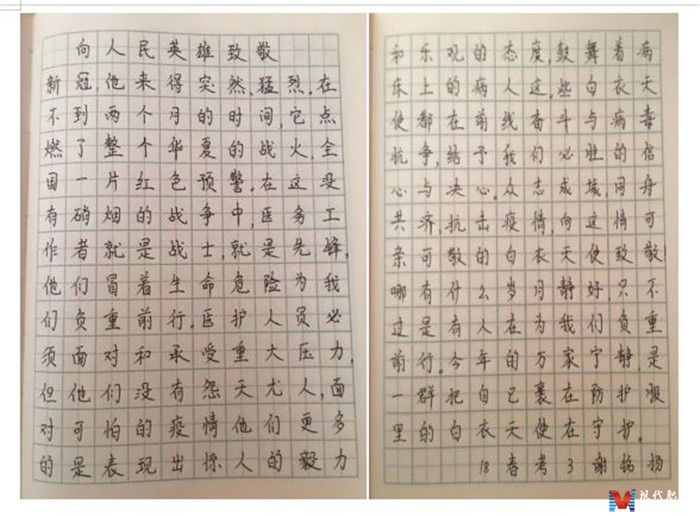 向人民英雄致敬
新冠,他来得突然,猛烈,在
不到两个月的时间,它点
燃了整个华夏的战火,全
国一片红色预警。在这没
有硝烟的战争中,医务工
作者就是战士,就是先锋,
他们冒着生命危险为我
们负重前行。医护人员必
须面对和承受重大压力,
但他们没有怨天尤人,面
对可怕的疫情他们更多
的是表现出惊人的毅力
和乐观的态度,鼓舞着病
床上的病人这些白衣天
使都在前线奋斗与病毒
抗争,给予我们必胜的信
心与决心。众志成城,同舟
共济,抗击疫情,向这情可
亲可敬的白衣天使致敬!
哪有什么岁月静好,只不
过是有人在为我们负重
前行。今年的万家宁静,是
一群把自己裹在防护服
里的白衣天使在守护。
18春考3谢铭扬
现代职